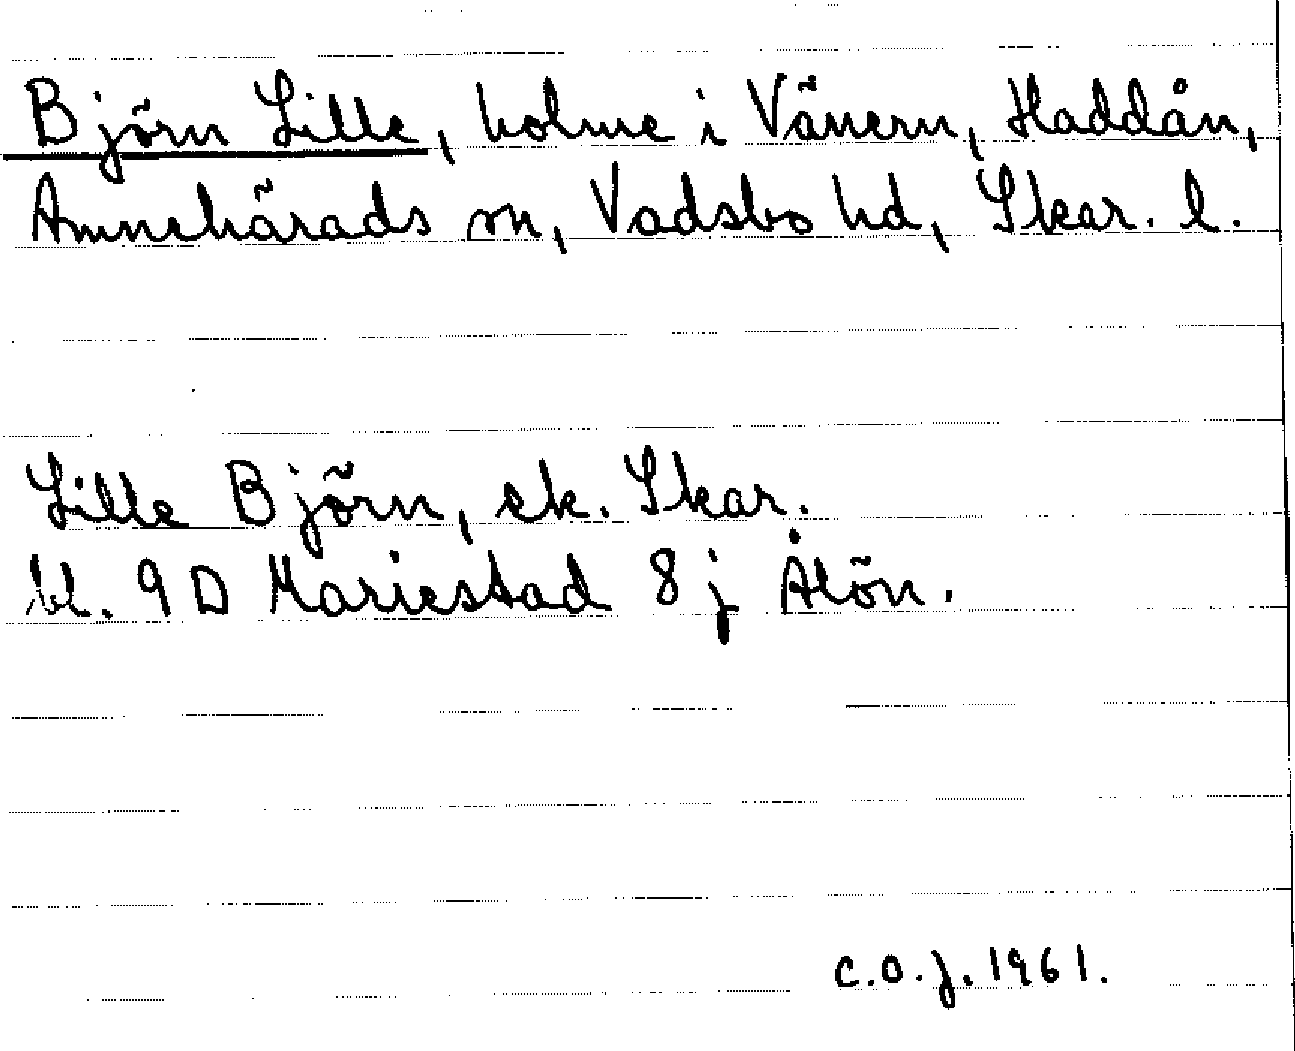 Björn Lille, holme i Vänern, Haddån,
Amnehärads sn, Vadsbo hd, Skar. l.
Lille Björn, ek. Skar.
bl. 9 D Mariestad 8 j Ålön.
C.O.J. 1961.